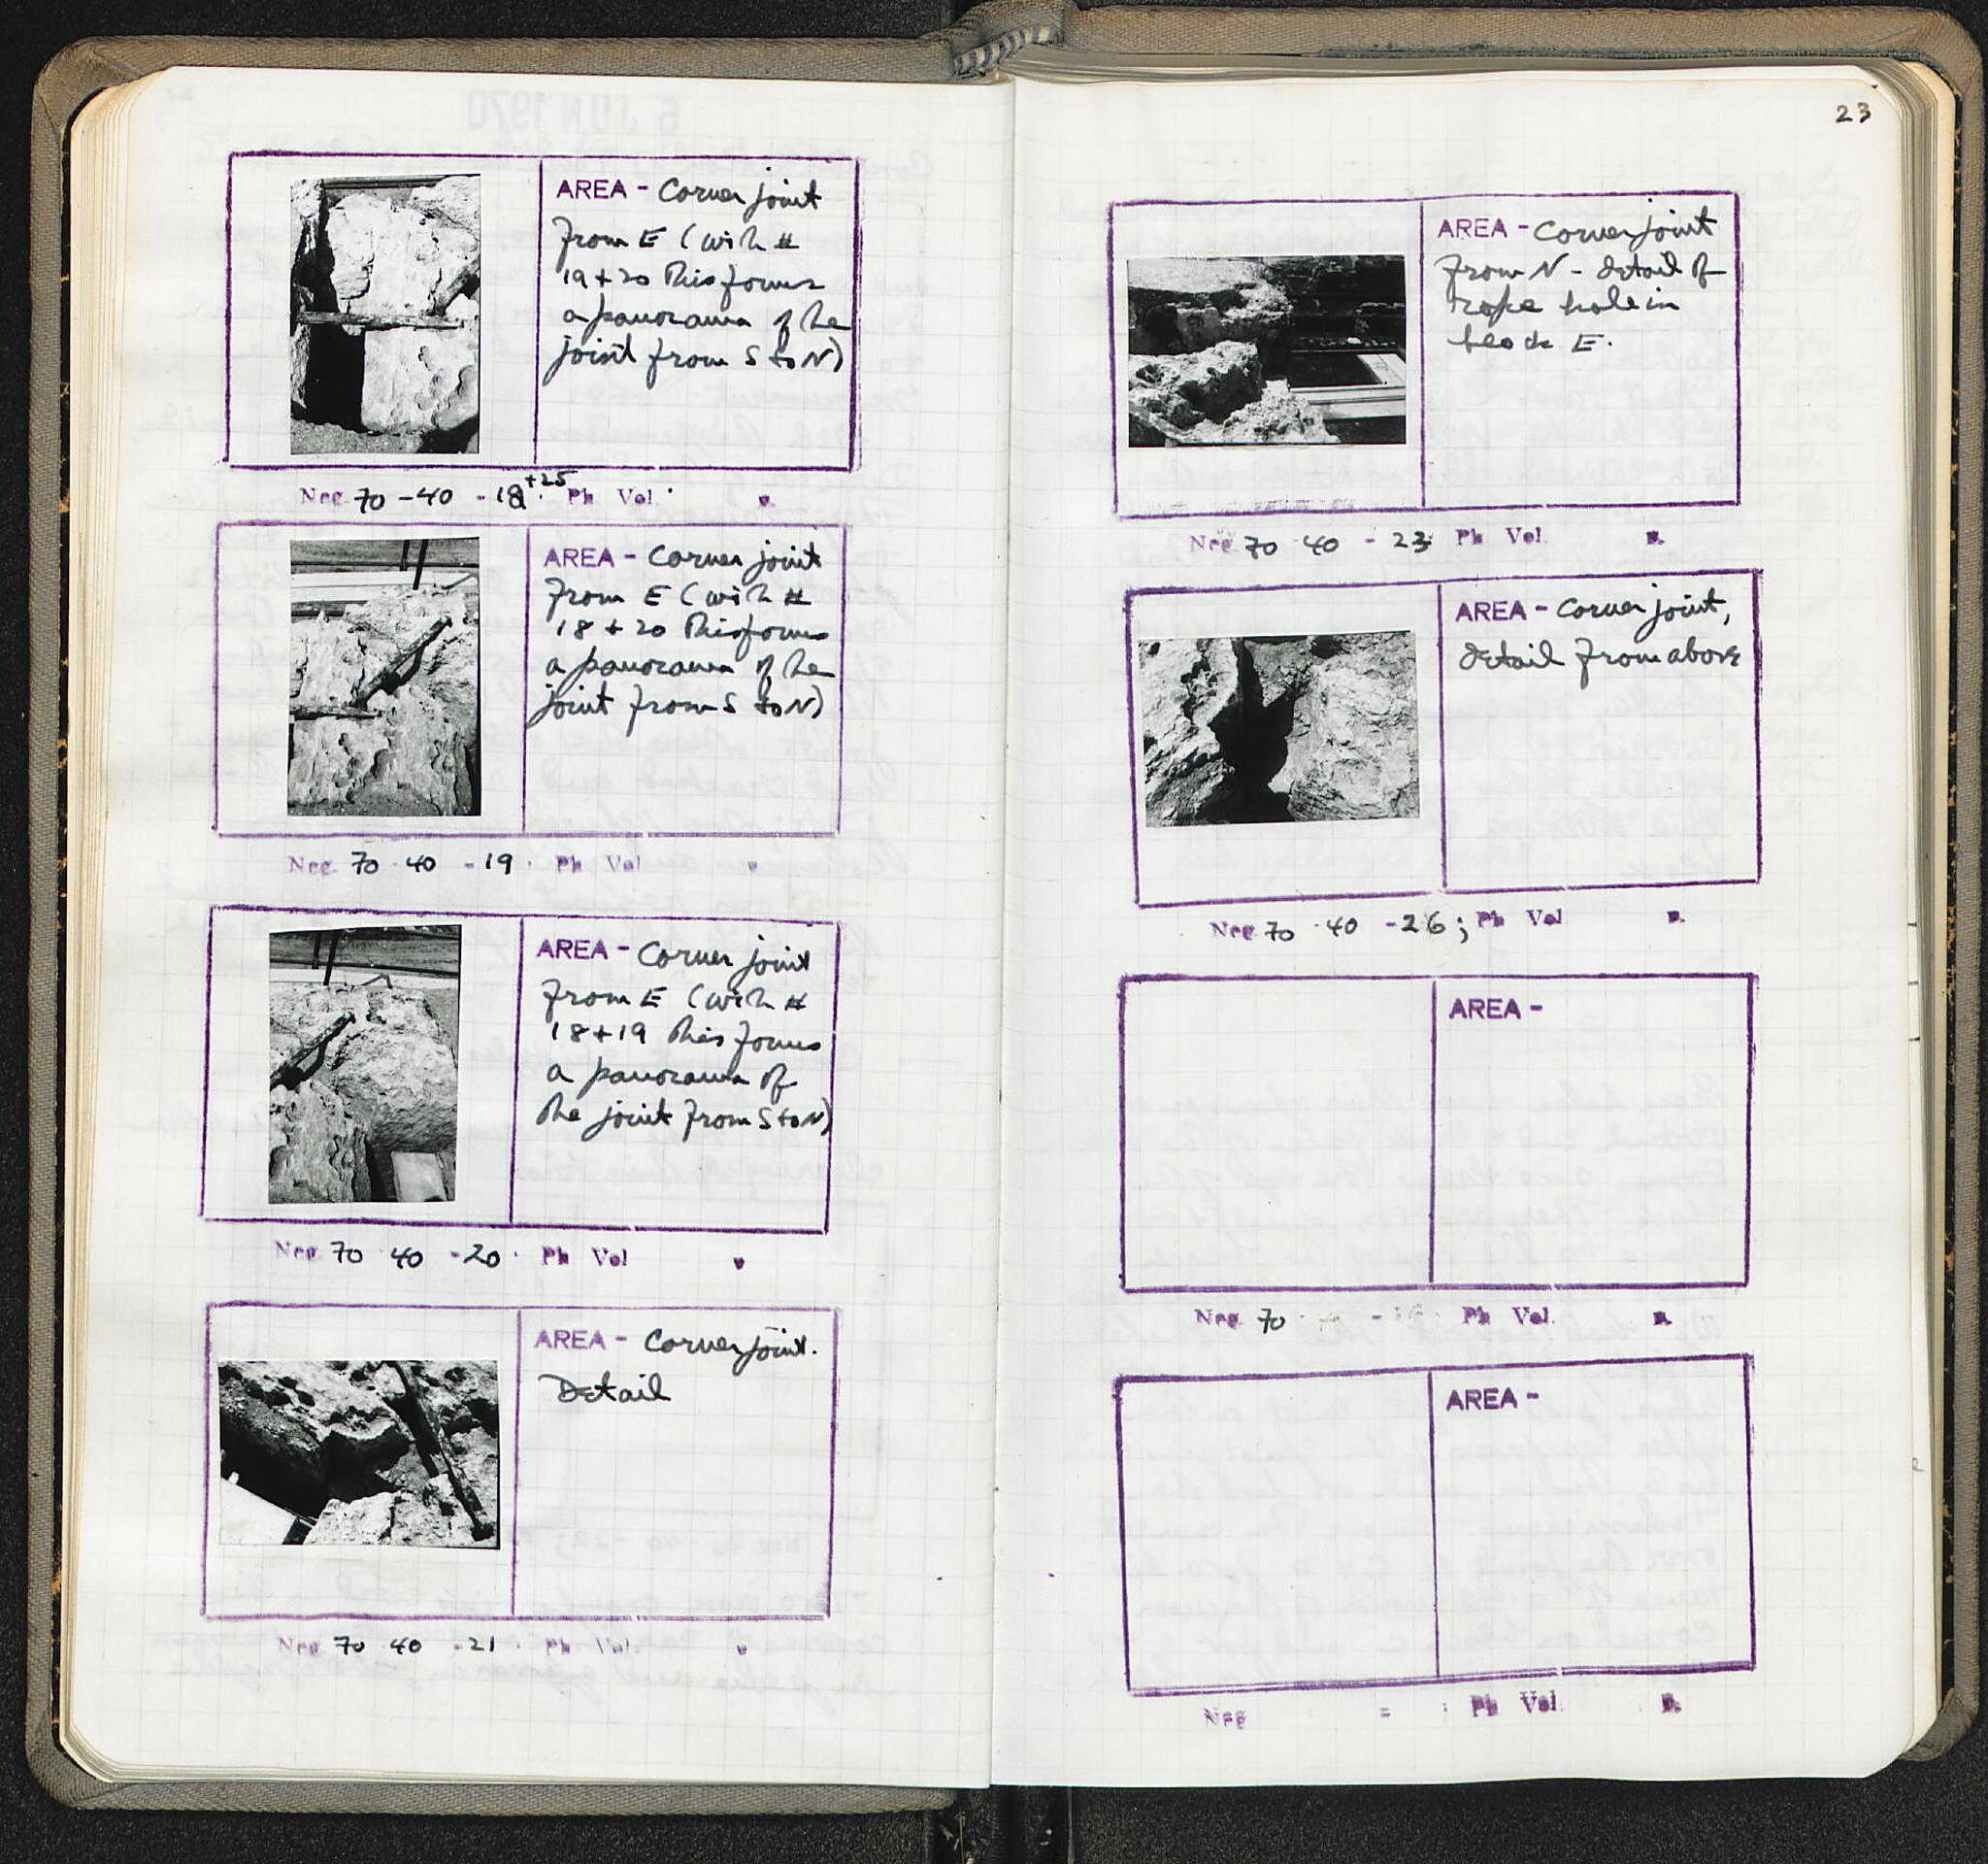 AREA - Corner joint
from E (with #
19+20 this forms
a panorama of the
joint from S to N)
Neg. 70 - 40 - 18 +25 . Ph Vol. p.
AREA - Corner joint
from E (with #
18 + 20 this forms
a panorama of the
joint from S to N)
Neg. 70 40 - 19 . Ph Vol p
AREA - Corner joint
from E (with #
18+19 this forms
a panorama of
the joint from S to N)
Neg. 70 40 - 20 . Ph Vol p
AREA - Corner joint.
Detail
Neg. 70 40 - 21 . Ph Vol p
23
AREA - Corner joint
from N - detail of
rope hole in
block E.
Neg. 70 40 - 23 Ph Vol. p.
AREA - Corner joint,
detail from above
Neg. 70 40 - 26; Ph Vol p.
AREA -
Neg. 70 - Ph Vol. p.
AREA -
Neg - : Ph Vol. p.